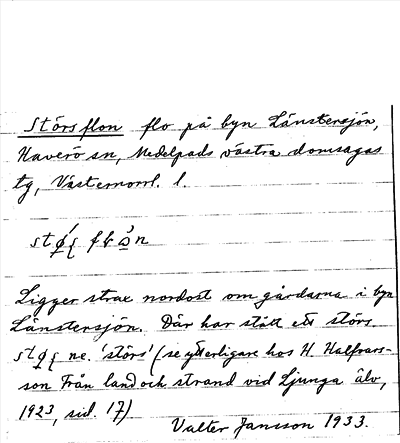 Störsflon flo på byn Länstersjön,
Haverö sn, Medelpads västra domsagas
tg, Västernorrl. l.
Ligger strax nordost om gårdarna i byn
Länstersjön. Där har stått ett störs,
ne. 'störs' (se ytterligare hos H. Halfvars-
son Från land och strand vid Ljunga älv,
1923, sid. 17)
Valter Jansson 1933.